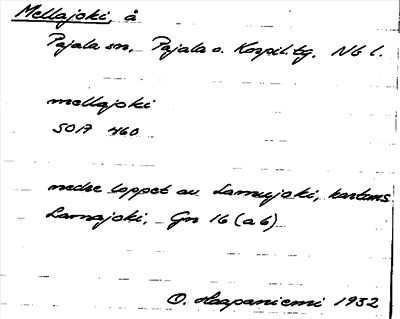 Mellajoki, å
Pajala sn, Pajala o. Korpil. tg. Nb l.
mellajoki
SOA 460
nedre loppet av Lamujoki, kartans
Lamajoki, Gn 16 (a6)
O. Haapaniemi 1932